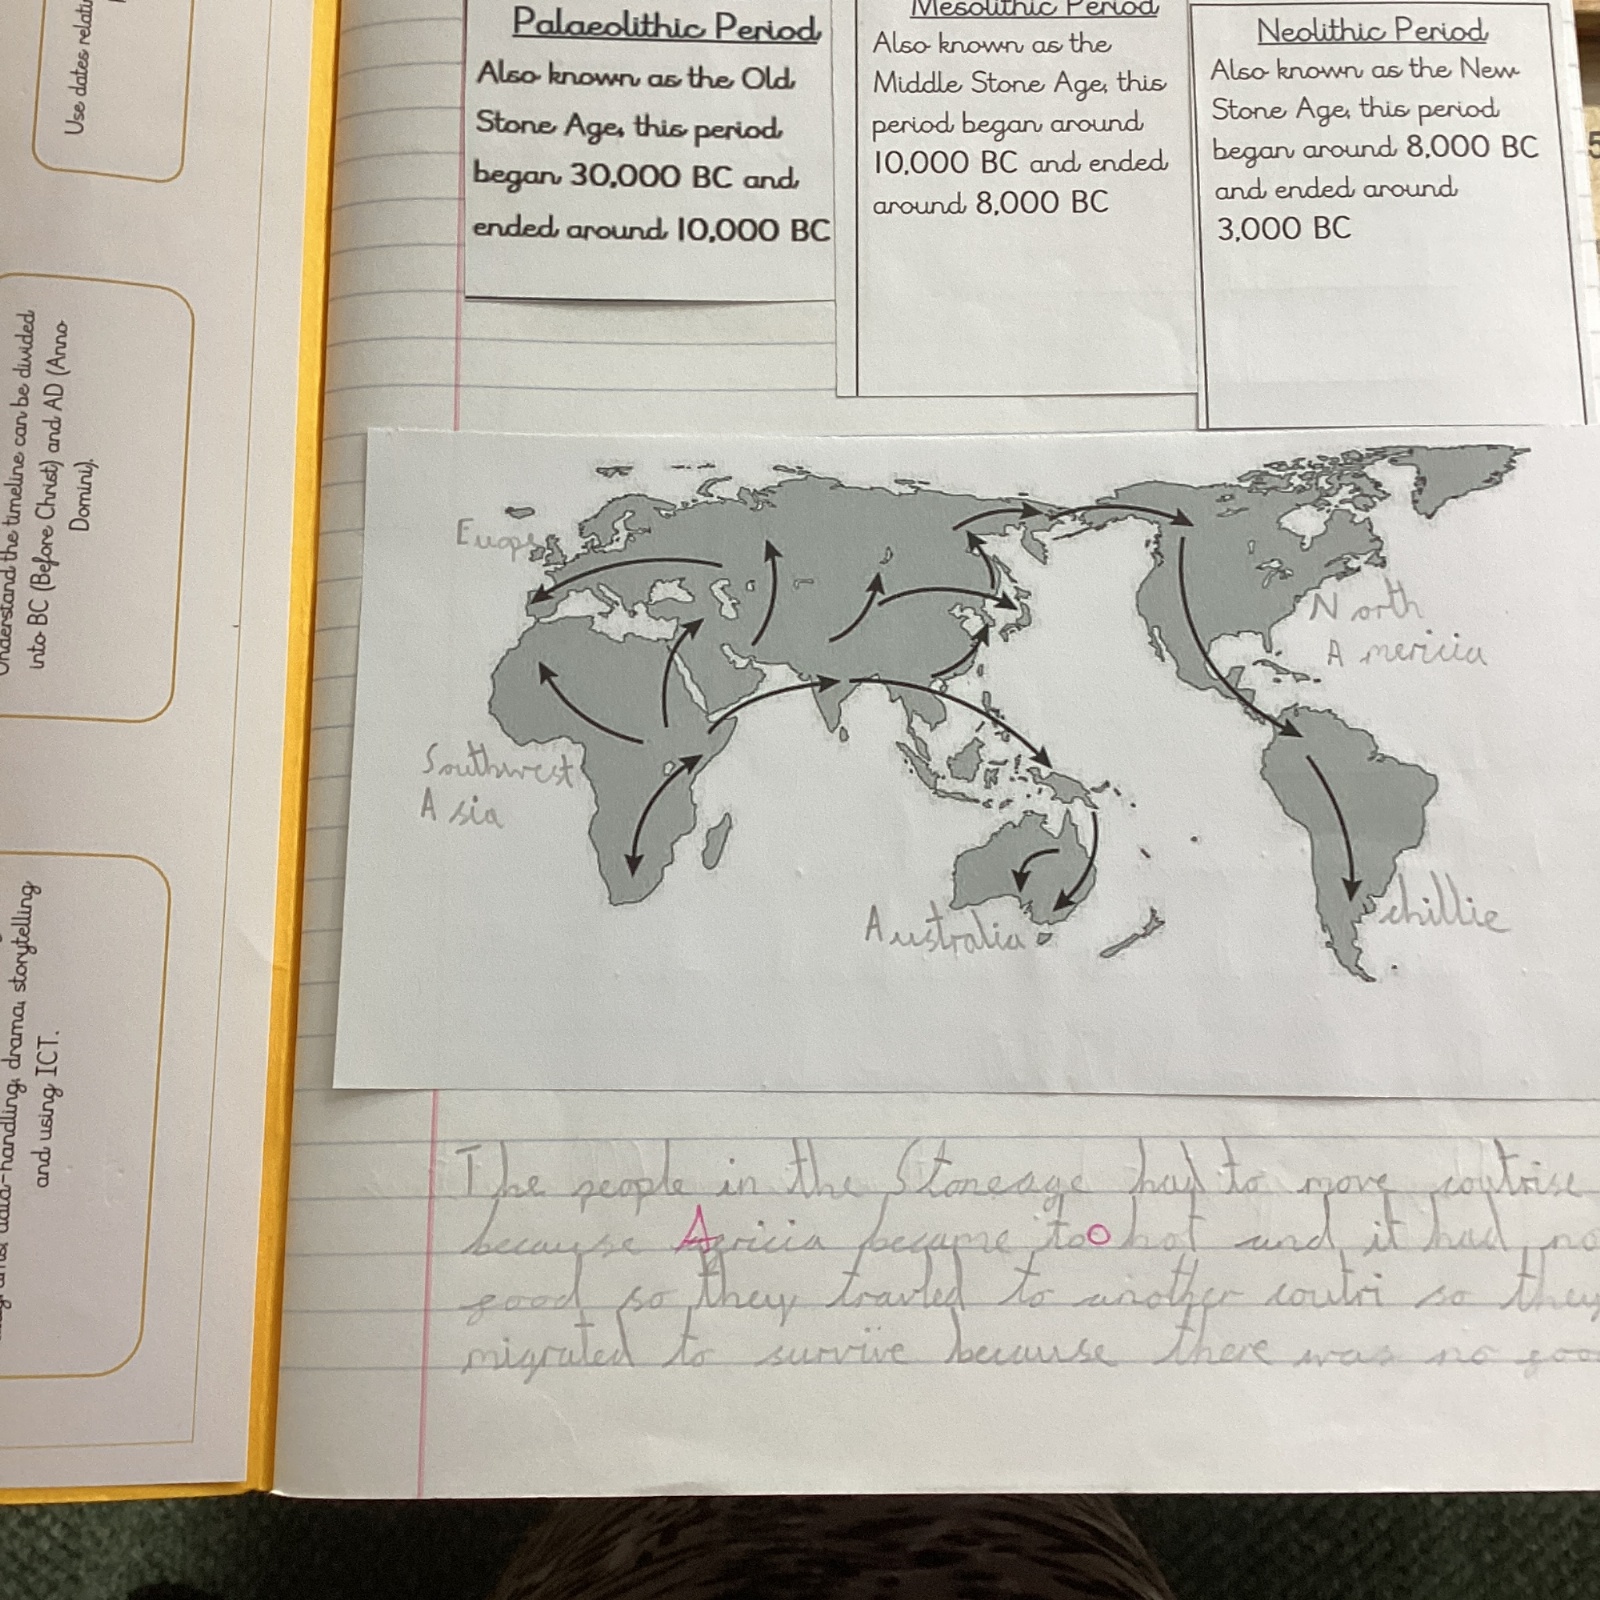 Use dates relati
Understand the timeline can be divided
into BC (Before Christ) and AD (Anno
Domini).
data-handling, drama, storytelling
and using ICT.
Palaeolithic Period
Also known as the Old
Stone Age, this period
began 30,000 BC and
ended around 10,000 BC
Mesolithic Period
Also known as the
Middle Stone Age, this
period began around
10,000 BC and ended
around 8,000 BC
Neolithic Period
Also known as the New
Stone Age, this period
began around 8,000 BC
and ended around
3,000 BC
5
Euope
North
Amercia
Southwest
Asia
Australia
chillie
The people in the Stoneage had to move coutrise
because Africia became too hot and it had no
good so they travled to another coutri so they
migrated to survive because there was no goo